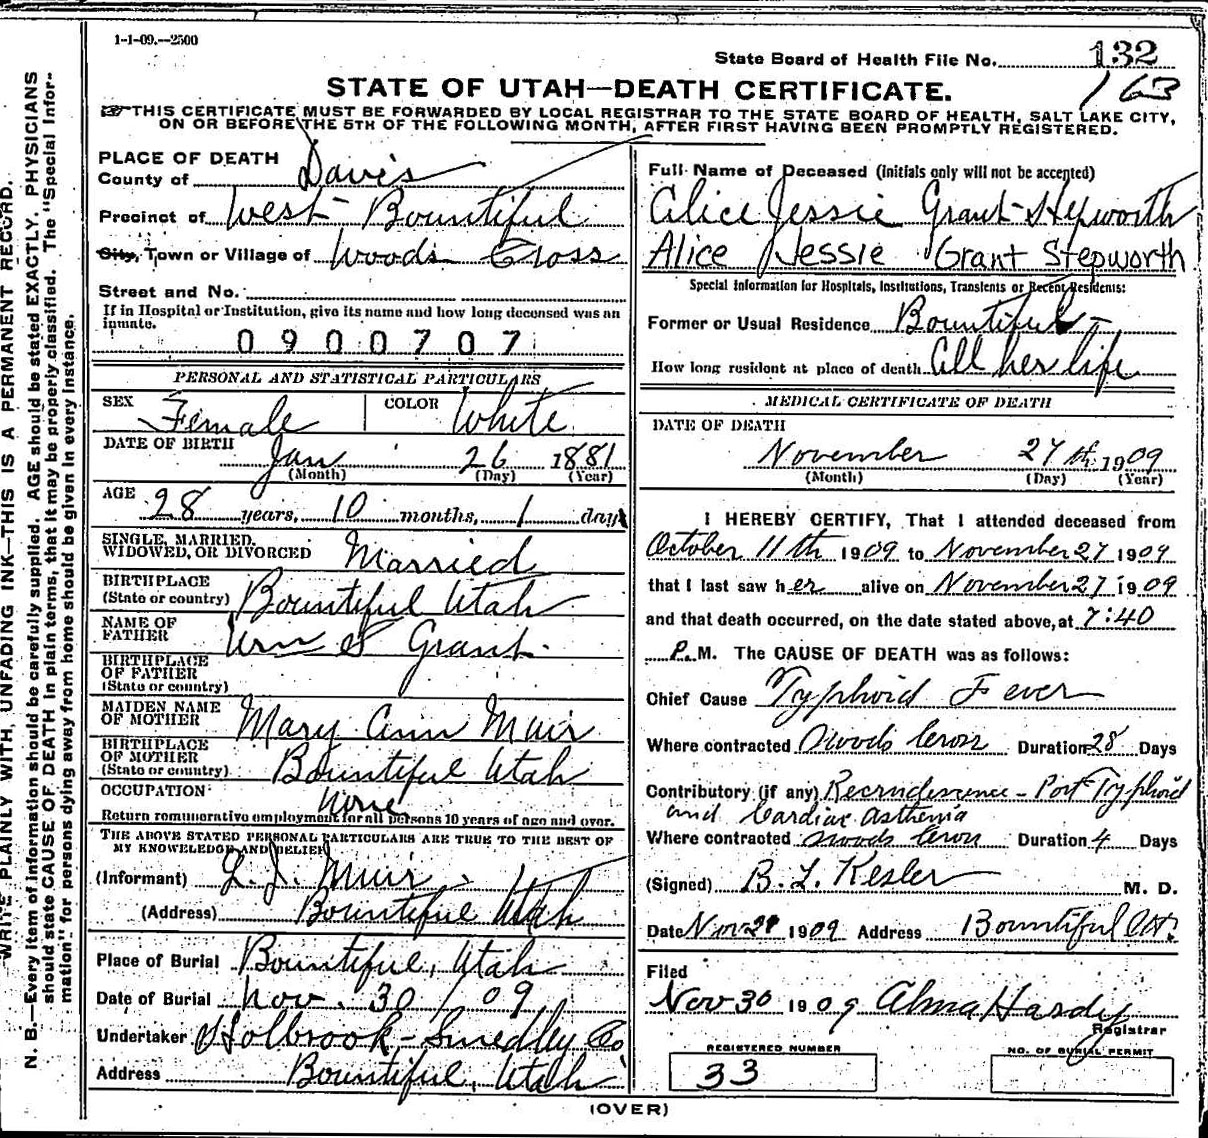 1-1-09.--2500
State Board of Health File No. 132
163
STATE OF UTAH—DEATH CERTIFICATE.
THIS CERTIFICATE MUST BE FORWARDED BY LOCAL REGISTRAR TO THE STATE BOARD OF HEALTH, SALT LAKE CITY,
ON OR BEFORE THE 5TH OF THE FOLLOWING MONTH, AFTER FIRST HAVING BEEN PROMPTLY REGISTERED.
WRITE PLAINLY WITH, UNFADING INK—THIS IS A PERMANENT RECORD.
N. B.—Every item of information should be carefully supplied. AGE should be stated EXACTLY. PHYSICIANS
should state CAUSE OF DEATH in plain terms, that it may be properly classified. The "Special Infor-
mation" for persons dying away from home should be given in every instance.
PLACE OF DEATH
County of Davis
Precinct of West Bountiful
City, Town or Village of Woods Cross
Street and No.
If in Hospital or Institution, give its name and how long deceased was an
inmate.
0900707
PERSONAL AND STATISTICAL PARTICULARS
SEX Female COLOR White
DATE OF BIRTH Jan 26 1881
(Month) (Day) (Year)
AGE 28 years, 10 months, 1 days
SINGLE, MARRIED,
WIDOWED, OR DIVORCED Married
BIRTHPLACE
(State or country) Bountiful Utah
NAME OF
FATHER Wm S Grant
BIRTHPLACE
OF FATHER
(State or country)
MAIDEN NAME
OF MOTHER Mary Ann Muir
BIRTHPLACE
OF MOTHER
(State or country) Bountiful Utah
OCCUPATION None
Return remunerative employment for all persons 10 years of age and over.
THE ABOVE STATED PERSONAL PARTICULARS ARE TRUE TO THE BEST OF
MY KNOWLEDGE AND BELIEF
(Informant) L. J. Muir
(Address) Bountiful Utah
Place of Burial Bountiful, Utah
Date of Burial Nov. 30 / 09
Undertaker Holbrook-Smedley Co
Address Bountiful, Utah
Full Name of Deceased (initials only will not be accepted)
Alice Jessie Grant Hepworth
Alice Jessie Grant Stepworth
Special Information for Hospitals, Institutions, Transients or Recent Residents:
Former or Usual Residence Bountiful
How long resident at place of death All her life
MEDICAL CERTIFICATE OF DEATH
DATE OF DEATH
November 27th 1909
(Month) (Day) (Year)
I HEREBY CERTIFY, That I attended deceased from
October 11th 1909 to November 27 1909
that I last saw her alive on November 27 1909
and that death occurred, on the date stated above, at 7:40
P. M. The CAUSE OF DEATH was as follows:
Chief Cause Typhoid Fever
Where contracted Woods Cross Duration 28 Days
Contributory (if any) Recrudescence - Post Typhoid
and Cardiac Asthenia
Where contracted Woods Cross Duration 4 Days
(Signed) B. L. Kesler M. D.
Date Nov 1909 Address Bountiful Ut.
Filed
Nov 30 1909 Alma Hardy
Registrar
REGISTERED NUMBER
33
NO. OF BURIAL PERMIT
(OVER)